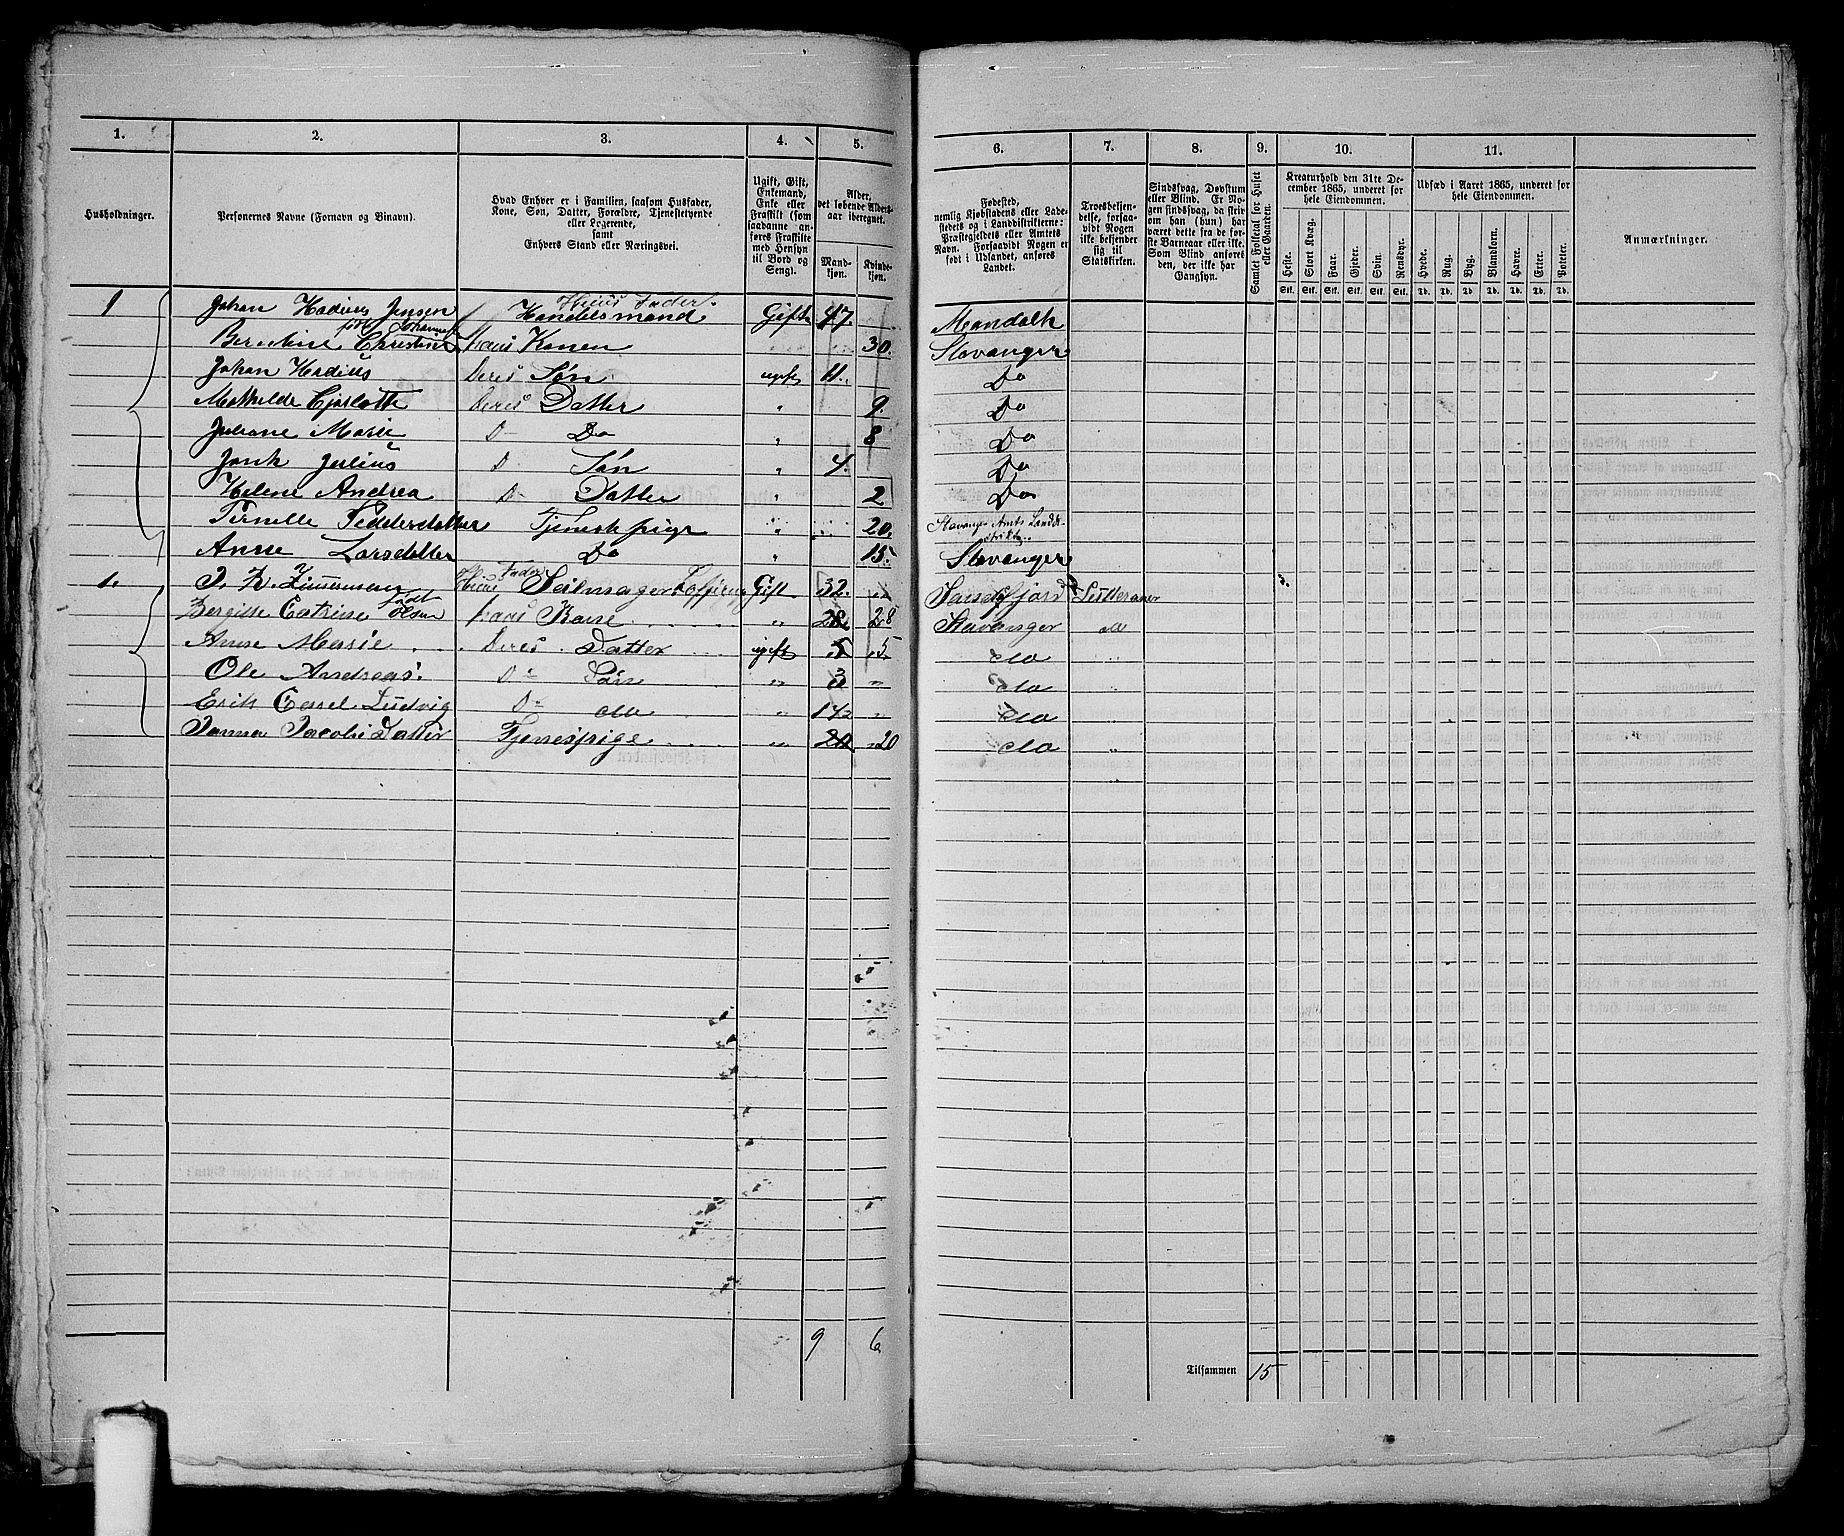 1. 2. 3. 4. 5. 6. 7. 8. 9. 10. 11.
Husholdninger.
Personernes Navne (Fornavn og Binavn).
Hvad Enhver er i Familien, saasom Husfader,
Kone, Søn, Datter, Forældre, Tjenestetyende
eller Logerende,
samt
Enhvers Stand eller Næringsvei.
Ugift, Gift,
Enkemand,
Enke eller
Fraskilt (som
saadanne an-
føres Fraskilte
med Hensyn
til Bord og
Seng).
Alder,
det løbende Alders-
aar iberegnet.
Mand-
kjøn.
Kvinde-
kjøn.
Fødested,
nemlig Kjøbstadens eller Lade-
stedets og i Landdistrikterne:
Præstegjeldets eller Amtets
Navn. Forsaavidt Nogen er
født i Udlandet, anføres
Landet.
Troesbekjen-
delse, forsaa-
vidt Nogen
ikke bekjender
sig til
Statskirken.
Sindssvag, Døvstum
eller Blind. Er No-
gen sindssvag, da skriv
om han (hun) har
været dette fra de før-
ste Barneaar eller ikke.
Som Blind anføres
den, der ikke har
Gangsyn.
Samlet Folketal for Huset
eller Gaarden.
Kreaturhold den 31te De-
cember 1865, underet for
hele Eiendommen.
Heste. Stort Kvæg. Faar. Gjeder. Svin. Rensdyr.
Stk. Stk. Stk. Stk. Stk. Stk.
Udsæd i Aaret 1865, underet for
hele Eiendommen.
Hvede. Rug. Byg. Blandkorn. Havre. Erter. Poteter.
Td. Td. Td. Td. Td. Td. Td.
Anmærkninger.
Huus Fader
1 Johan Jensen Handelsmand Gift 47. Mandalh
Christine hans Konen 30. Stavanger
Johan Deres Søn ugift 11. Do
Mathilde Deres Datter " 9. Do
Juliane Marie D— Do " 8 Do
Julius D. Søn " 4. Do
Helene Andrea D— Datter " 2 Do
Pernille Pedersdatter Tjenestepige " 20. Stavanger Amts Landdi-
strikt.
Anne Larsdatter Do " 15. Stavanger
Fader
1. Huus Seilmager Gift 32. Lutteraner
født
Bergitte Catrine Olsen hans Kone " 28 28 Stavanger do
Anne Marie Deres Datter ugift 5 5 do "
Ole Andreas. D— Søn " 3 " do
Erik Ludvig D— do " 1½ " do
Jacobs Datter Tjenespige " 20 20 do "
9 6
Tilsammen 15